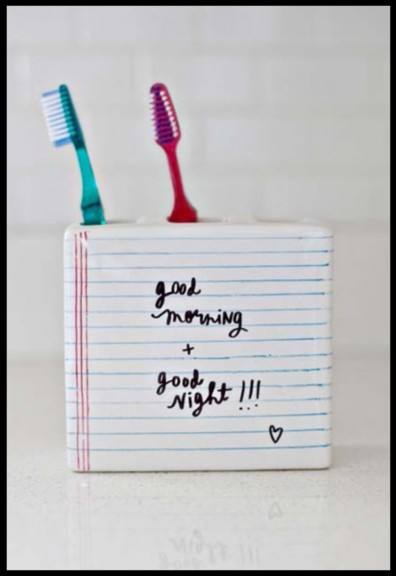 good
morning
+
good
Night !!!
♡